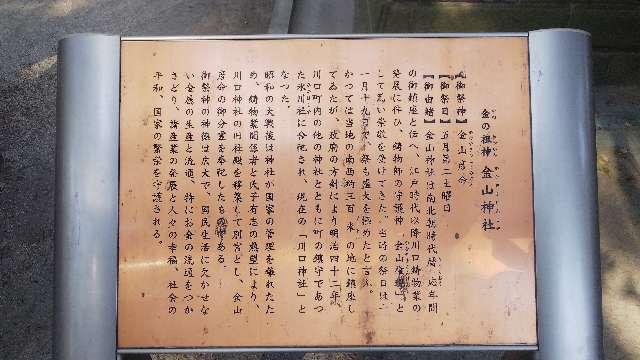 金の祖神 金山神社
【御祭神】金山彦命
【御祭日】五月第二土曜日
【御由緒】金山神社は南北朝時代
の御鎮座と伝へ、江戸時代以降川口鋳物業の
発展に伴ひ、鋳物師の守護神「金山
して篤い崇敬を受けてきた。当時の祭日は二
一月十九日で、祭も盛大を極めたと言ふ。
かつては当地の南西約三百米の地に鎮座し
てゐたが、政府の方針により明治四十二年、
川口町内の他の神社とともに町の鎮守であつ
た氷川社に合祀され、現在の「川口神社」と
なつた。
昭和の大戦後は神社が国家の管理を離れたた
め、鋳物業関係者と氏子有志の熱望により、
川口神社の旧社殿を移築して別宮とし、金山
彦命の御分霊を奉祀したものである。
御祭神の神徳は広大で、国民生活に欠かせな
い金属の生産と流通、特にお金の流通をつか
さどり、諸産業の発展と人々の幸福、社会の
平和、国家の繁栄を守護される。